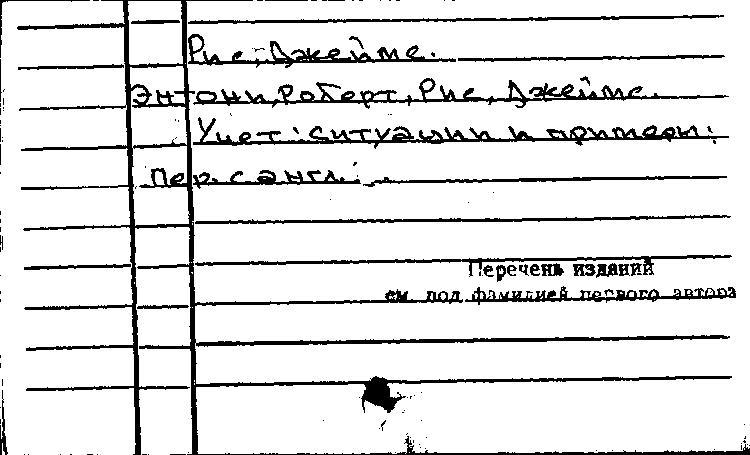 Рис, Джеймс.
Энтони, Роберт, Рис, Джеймс.
Учет: ситуации и примеры:
Пер. с англ. : ...
Перечень изданий
см. под фамилией первого автора